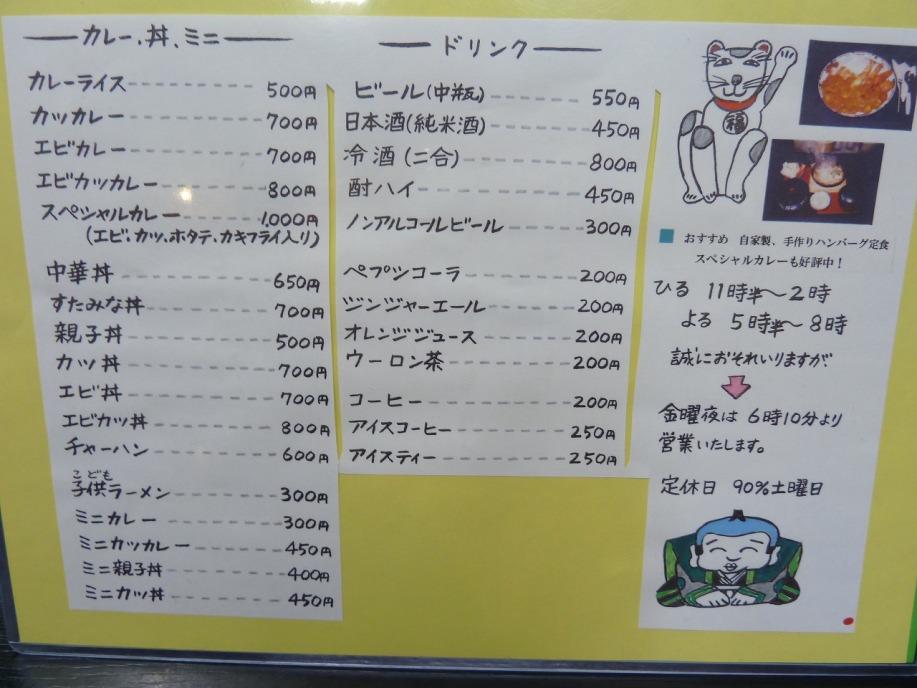 カレー、丼、ミニ
カレーライス 500円
カツカレー 700円
エビカレー 700円
エビカツカレー 800円
スペシャルカレー 1,000円
(エビ、カツ、ホタテ、カキフライ入り)
中華丼 650円
すたみな丼 700円
親子丼 500円
カツ丼 700円
エビ丼 700円
エビカツ丼 800円
チャーハン 600円
こども
子供ラーメン 300円
ミニカレー 300円
ミニカツカレー 450円
ミニ親子丼 400円
ミニカツ丼 450円
ドリンク
ビール(中瓶) 550円
日本酒(純米酒) 450円
冷酒(二合) 800円
酎ハイ 450円
ノンアルコールビール 300円
ペプシコーラ 200円
ジンジャーエール 200円
オレンジジュース 200円
ウーロン茶 200円
コーヒー 200円
アイスコーヒー 250円
アイスティー 250円
福
おすすめ 自家製、手作りハンバーグ定食
スペシャルカレーも好評中！
ひる 11時半～2時
よる 5時半～8時
誠におそれいりますが、
金曜夜は6時10分より
営業いたします。
定休日 90%土曜日